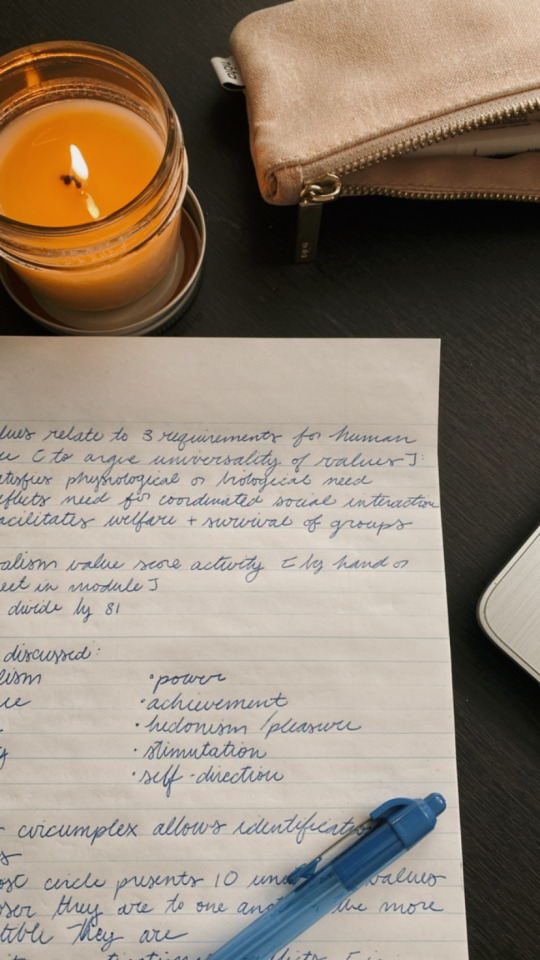 lues relate to 3 requirements for human
e [to argue universality of values]:
atisfies physiological or biological need
eflects need for coordinated social interaction
acilitates welfare + survival of groups
alism value score activity [by hand or
eet in module]
divide by 81
discussed:
lism
•power
ce
•achievement
•hedonism/pleasure
y
•stimutation
•self-direction
circumplex allows identification
s
ost circle presents 10 values
oser they are to one the more
tible they are